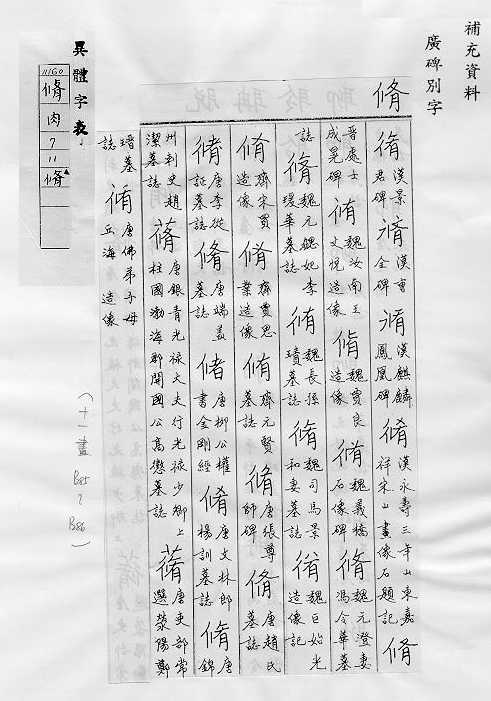 補充資料
廣碑別字
脩
脩 漢景君碑 脩 漢曹全碑 脩 漢麒麟鳳凰碑 脩 漢永壽三年山東嘉祥宋山畫像石題記 脩
晉處士成晃碑 脩 魏汝南王文悅造像 脩 魏賈良造像 脩 魏義橋石像碑 脩 魏元澄妻馮令華墓
誌 脩 魏元魏妃李瑗華墓誌 脩 魏長孫瑱墓誌 脩 魏司馬景和妻墓誌 脩 魏巨始光造像記
脩 齊宋買造像 脩 齊賈思業造像 脩 齊元賢墓誌 脩 唐張尊師碑 脩 唐趙氏墓誌
脩 唐李從証墓誌 脩 唐端墓誌 脩 唐柳公權書金剛經 脩 唐文林郎楊訓墓誌 脩 唐錦
州刺史趙潔墓誌 蓨 唐銀青光祿大夫行光祿少卿上柱國渤海郡開國公高懲墓誌 蓨 唐吏部常選滎陽鄭
瑨墓誌 脩 唐佛弟子母丘海造像
異體字表
11160
脩
肉
7
11
脩
(十一畫 B85? B86)